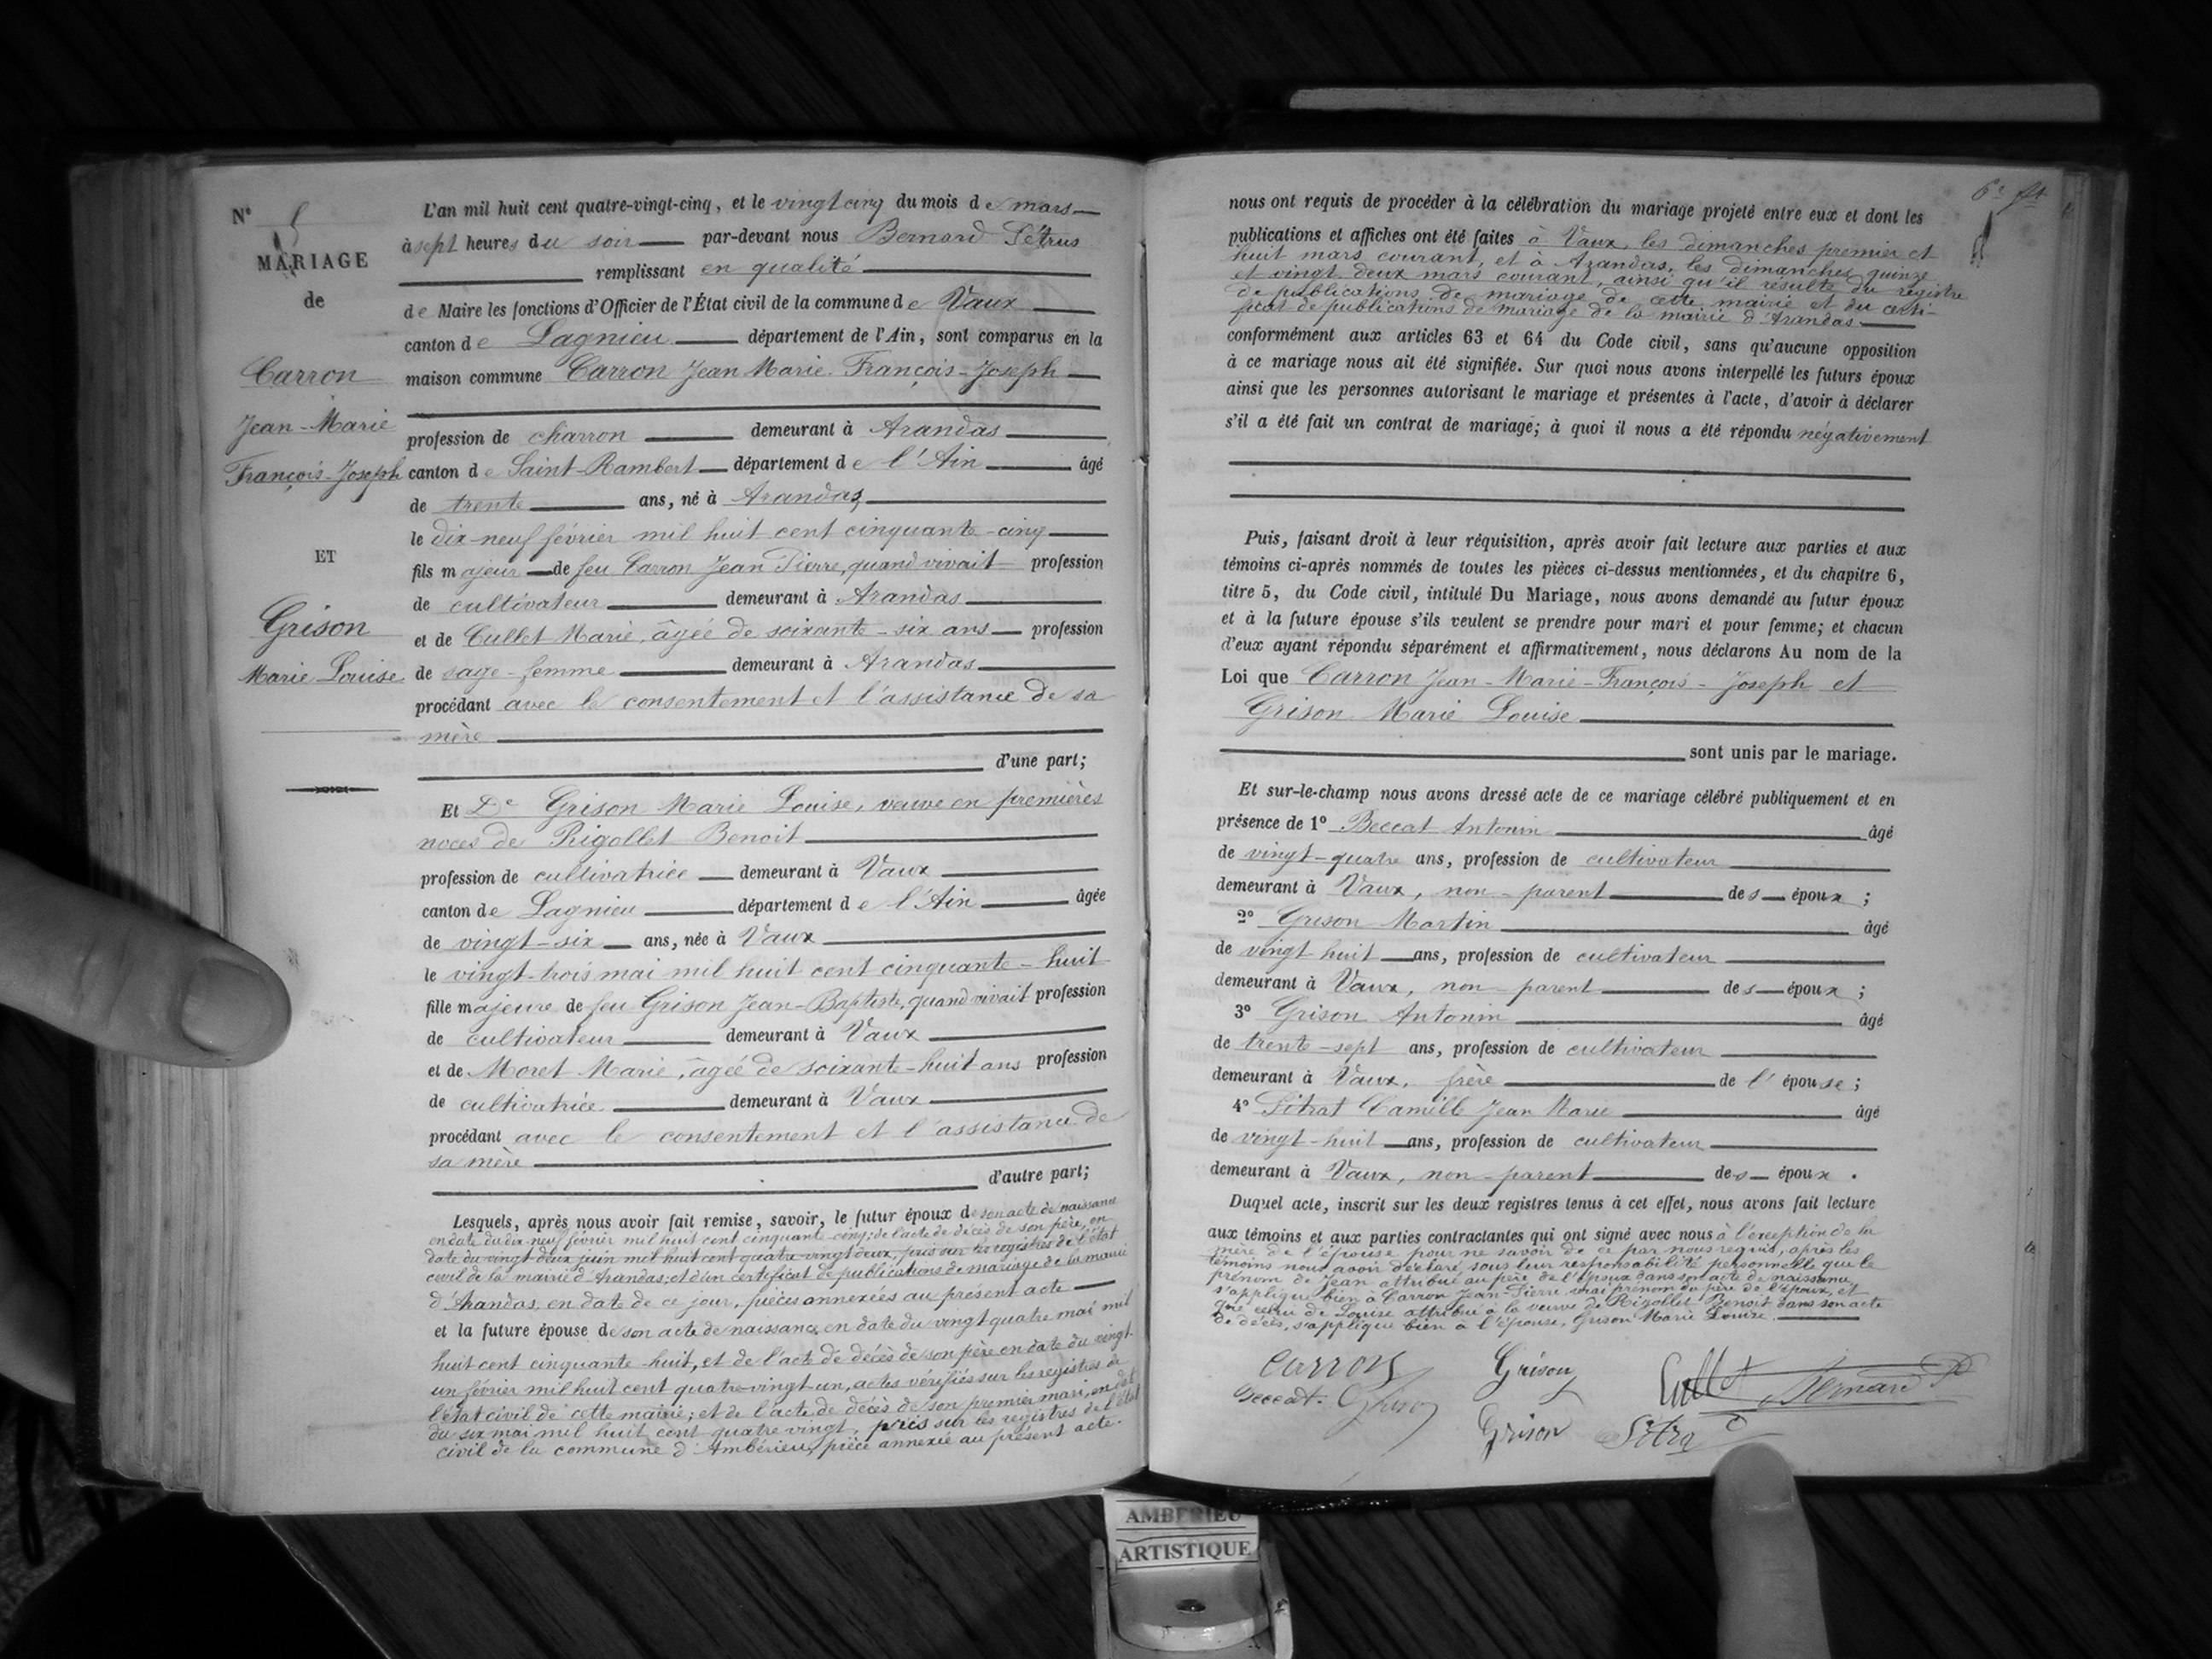 N° 5
MARIAGE
de
Carron
Jean-Marie
François-Joseph
ET
Grison
Marie Louise
L'an mil huit cent quatre-vingt-cinq, et le vingt cinq du mois de mars
à sept heures du soir par-devant nous Bernard Pétrus
remplissant en qualité
de Maire les fonctions d'Officier de l'État civil de la commune de Vaux
canton de Lagnieu département de l'Ain, sont comparus en la
maison commune Carron Jean Marie François-Joseph
profession de charron demeurant à Arandas
canton de Saint-Rambert département de l'Ain âgé
de trente ans, né à Arandas
le dix-neuf février mil huit cent cinquante-cinq
fils majeur de feu Carron Jean Pierre, quand vivait profession
de cultivateur demeurant à Arandas
et de Cullet Marie, âgée de soixante-six ans profession
de sage-femme demeurant à Arandas
procédant avec le consentement et l'assistance de sa
mère
d'une part;
Et De Grison Marie Louise, veuve en premières
noces de Rigollet Benoit
profession de cultivatrice demeurant à Vaux
canton de Lagnieu département de l'Ain âgée
de vingt-six ans, née à Vaux
le vingt-trois mai mil huit cent cinquante-huit
fille majeure de feu Grison Jean-Baptiste, quand vivait profession
de cultivateur demeurant à Vaux
et de Moret Marie, âgée de soixante-huit ans profession
de cultivatrice demeurant à Vaux
procédant avec le consentement et l'assistance de
sa mère
d'autre part;
Lesquels, après nous avoir fait remise, savoir, le futur époux de son acte de naissance
en date du dix-neuf février mil huit cent cinquante-cinq; de l'acte de décès de son père, en
date du vingt deux juin mil huit cent quatre-vingt deux, pris sur les registres de l'état
civil de la mairie d'Arandas; et d'un certificat de publications de mariage de la mairie
d'Arandas, en date de ce jour, pièces annexées au présent acte
et la future épouse de son acte de naissance en date du vingt quatre mai mil
huit cent cinquante-huit, et de l'acte de décès de son père en date du vingt
un février mil huit cent quatre-vingt-un, actes vérifiés sur les registres de
l'état civil de cette mairie; et de l'acte de décès de son premier mari, en date
du six mai mil huit cent quatre vingt, pris sur les registres de l'état
civil de la commune d'Ambérieu, pièce annexée au présent acte.
nous ont requis de procéder à la célébration du mariage projeté entre eux et dont les
publications et affiches ont été faites à Vaux, les dimanches premier et
huit mars courant, et à Arandas, les dimanches quinze
et vingt deux mars courant, ainsi qu'il résulte du registre
de publications de mariage de cette mairie et du certi-
ficat de publications de mariage de la mairie d'Arandas
conformément aux articles 63 et 64 du Code civil, sans qu'aucune opposition
à ce mariage nous ait été signifiée. Sur quoi nous avons interpellé les futurs époux
ainsi que les personnes autorisant le mariage et présentes à l'acte, d'avoir à déclarer
s'il a été fait un contrat de mariage; à quoi il nous a été répondu négativement
Puis, faisant droit à leur réquisition, après avoir fait lecture aux parties et aux
témoins ci-après nommés de toutes les pièces ci-dessus mentionnées, et du chapitre 6,
titre 5, du Code civil, intitulé Du Mariage, nous avons demandé au futur époux
et à la future épouse s'ils veulent se prendre pour mari et pour femme; et chacun
d'eux ayant répondu séparément et affirmativement, nous déclarons Au nom de la
Loi que Carron Jean-Marie-François-Joseph et
Grison Marie Louise
sont unis par le mariage.
Et sur-le-champ nous avons dressé acte de ce mariage célébré publiquement et en
présence de 1° Beccat Antonin âgé
de vingt-quatre ans, profession de cultivateur
demeurant à Vaux, non-parent des époux;
2° Grison Martin âgé
de vingt huit ans, profession de cultivateur
demeurant à Vaux, non-parent des époux;
3° Grison Antonin âgé
de trente-sept ans, profession de cultivateur
demeurant à Vaux, frère de l'épouse;
4° Pitrat Camille Jean Marie âgé
de vingt-huit ans, profession de cultivateur
demeurant à Vaux, non-parent des époux.
Duquel acte, inscrit sur les deux registres tenus à cet effet, nous avons fait lecture
aux témoins et aux parties contractantes qui ont signé avec nous à l'exception de la
mère de l'épouse pour ne savoir de ce par nous requis, après les
témoins nous avoir déclaré sous leur responsabilité personnelle que le
prénom de Jean attribué au père de l'époux dans son acte de naissance,
s'applique bien à Carron Jean-Pierre vrai prénom du père de l'époux, et
que celui de Louise attribué à la veuve de Rigollet Benoit dans son acte
de décès, s'applique bien à l'épouse, Grison Marie Louise.
Carron Grison Cullet Bernard P
Beccat Grison Grison Pitra
AMBERIEU
ARTISTIQUE